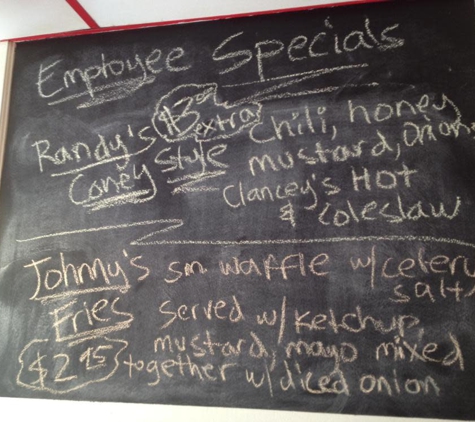 Employee Specials
Randy's $3.00 extra Chili, honey
Coney Style mustard, Onion
Clancey's Hot
& Coleslaw
Johnny's sm waffle w/celery
salt
Fries served w/ Ketchup,
mustard, mayo mixed
together w/ diced onion